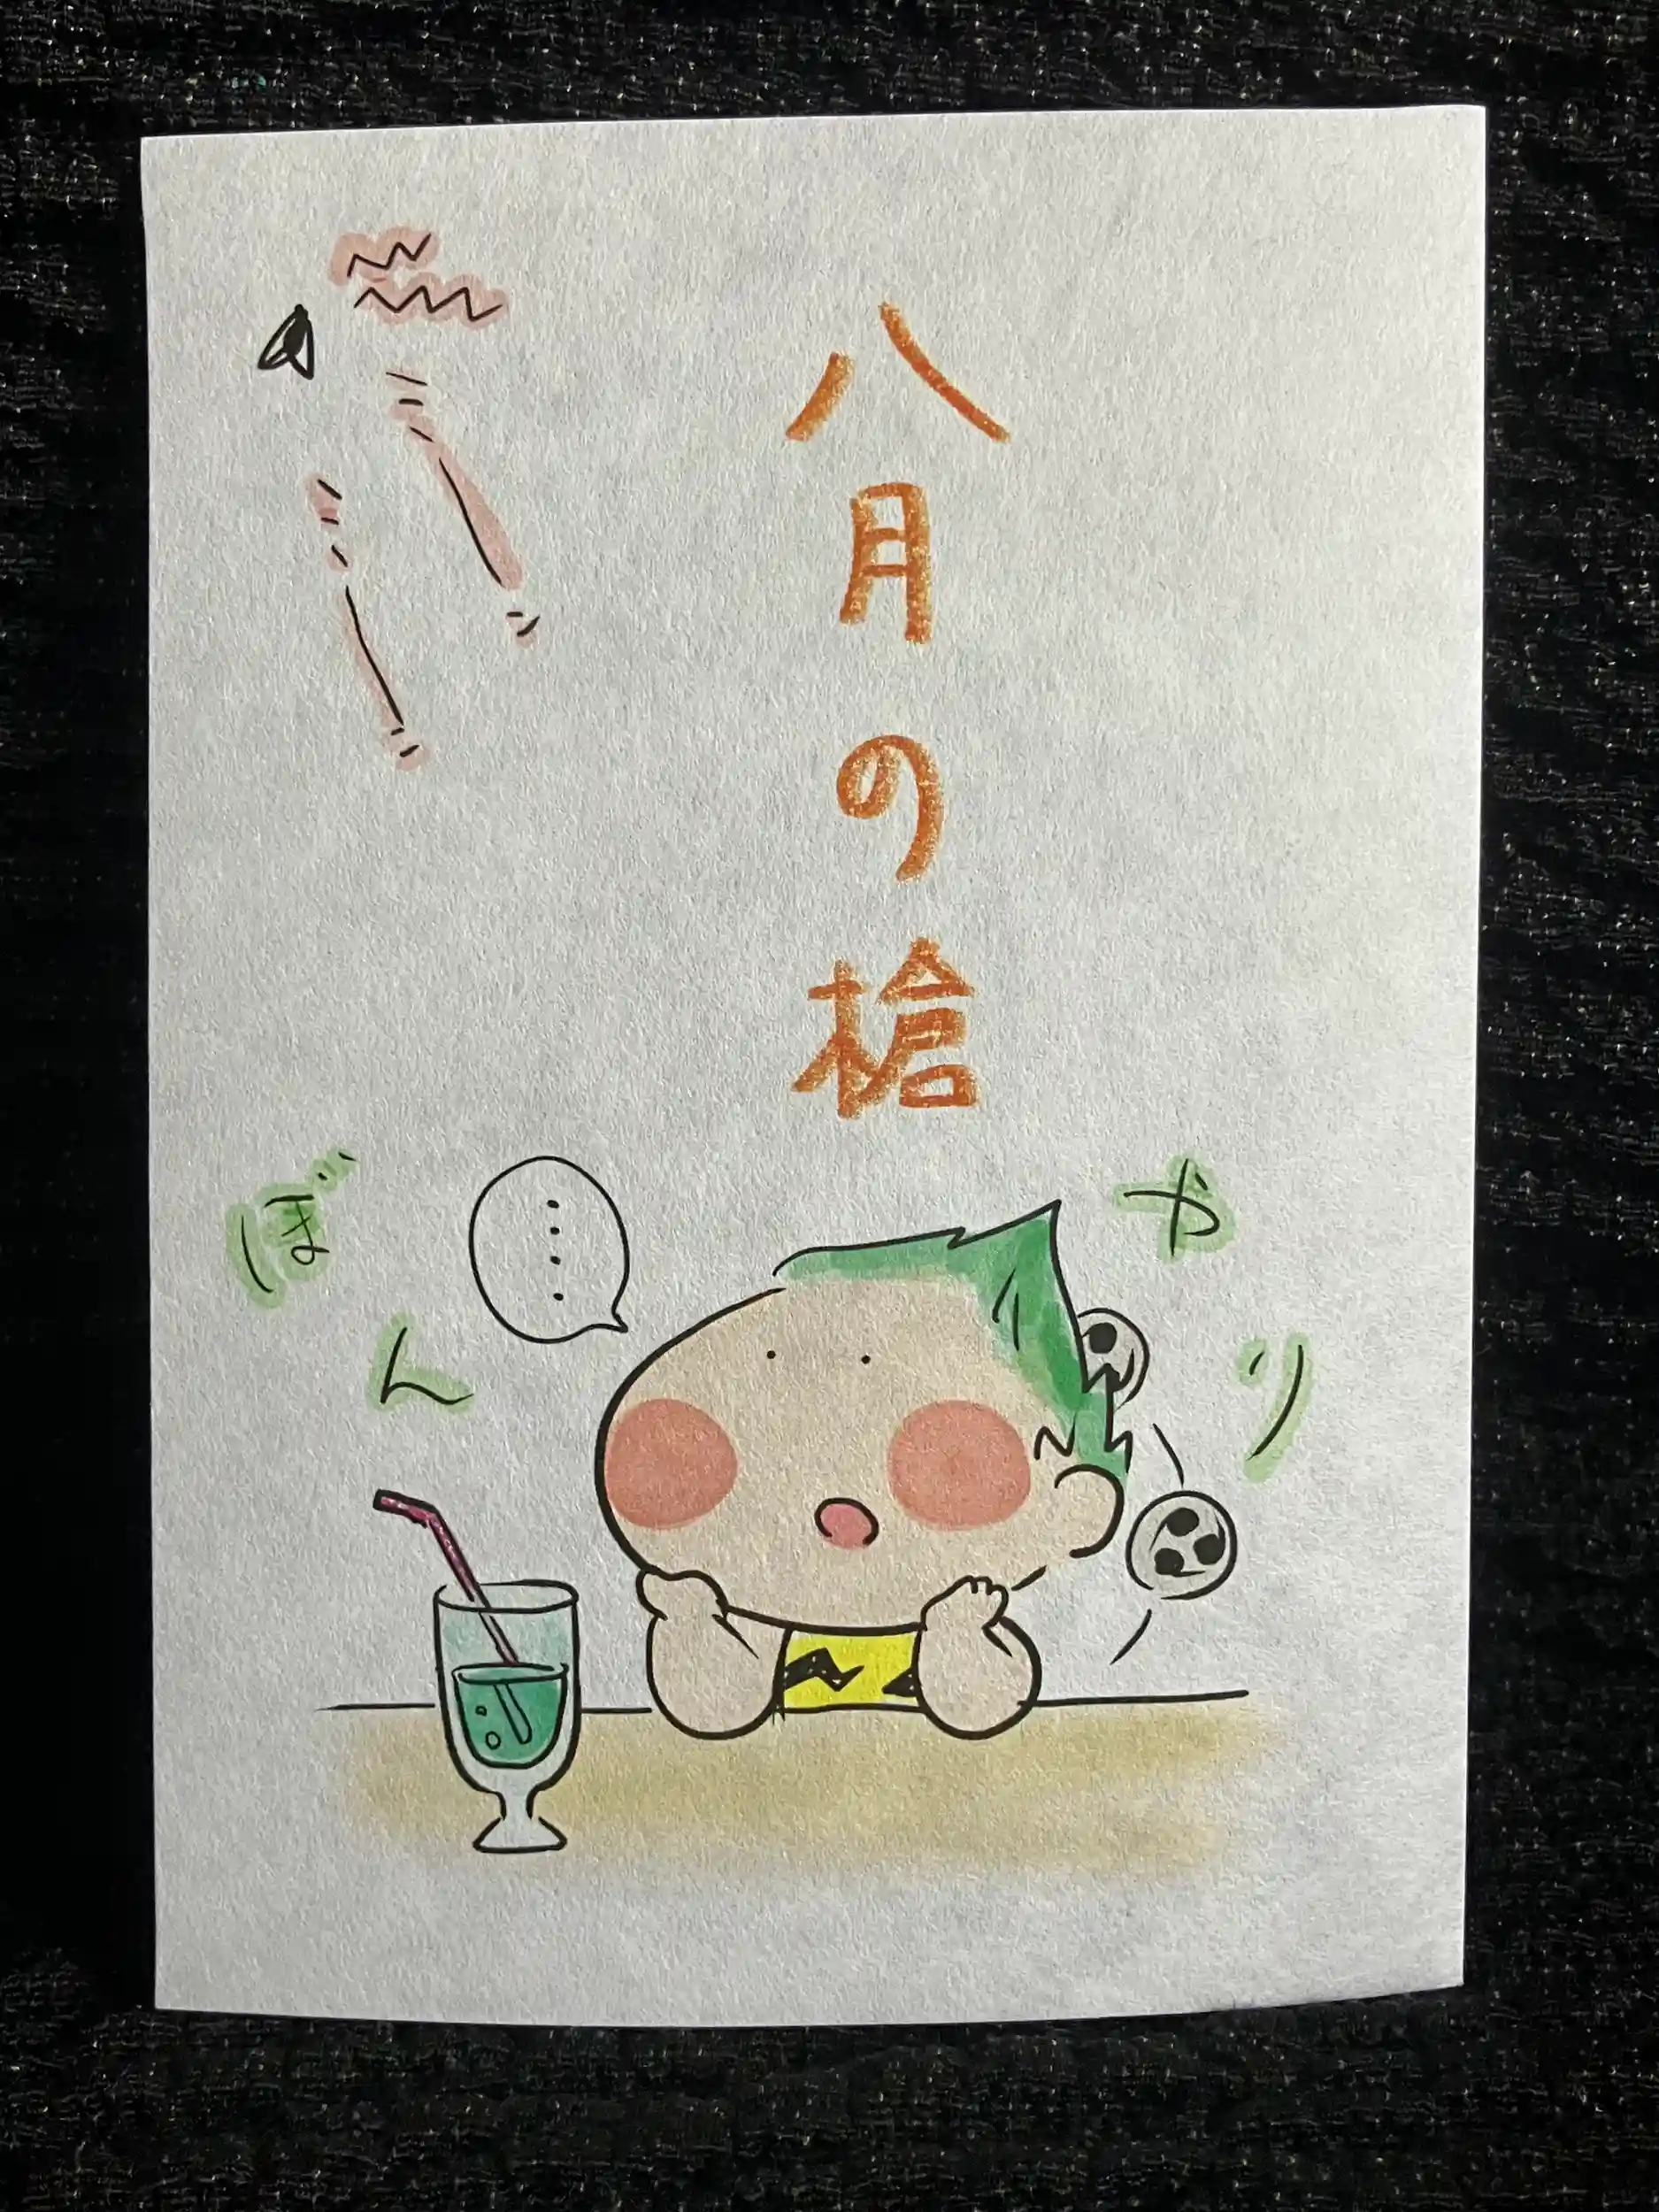 八月の槍
ぼんやり
....